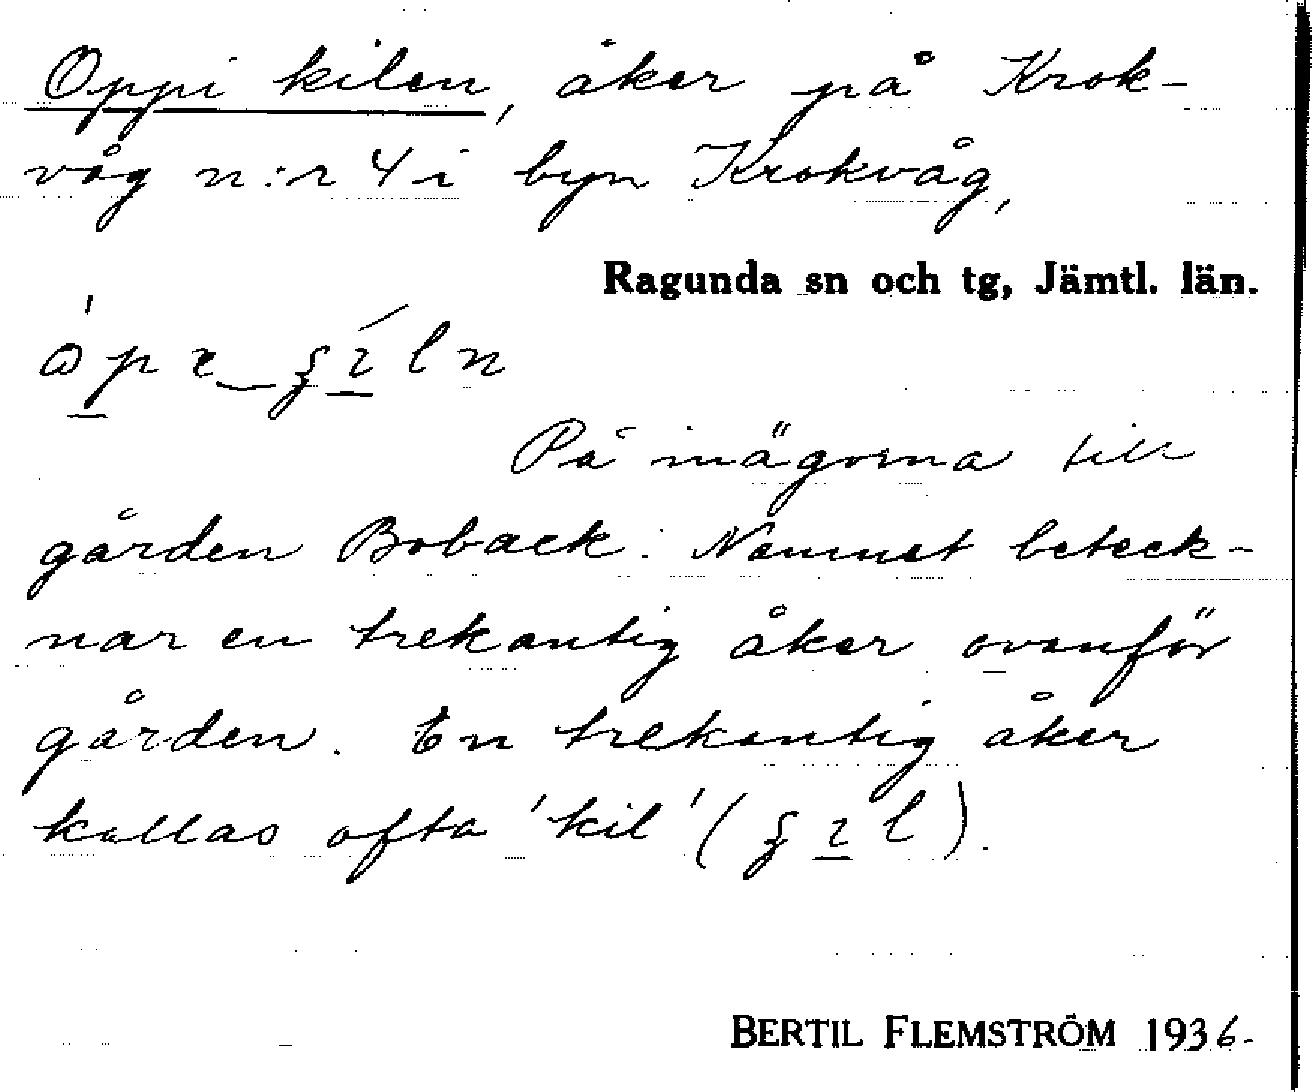 Oppi kilen, åker på Krok-
våg n:r 4 i byn Krokvåg,
Ragunda sn och tg, Jämtl. län.
På inägorna till
gården Boback. Namnet beteck-
nar en trekantig åker ovanför
gården. En trekantig åker
kallas ofta 'kil'
BERTIL FLEMSTRÖM 1936.